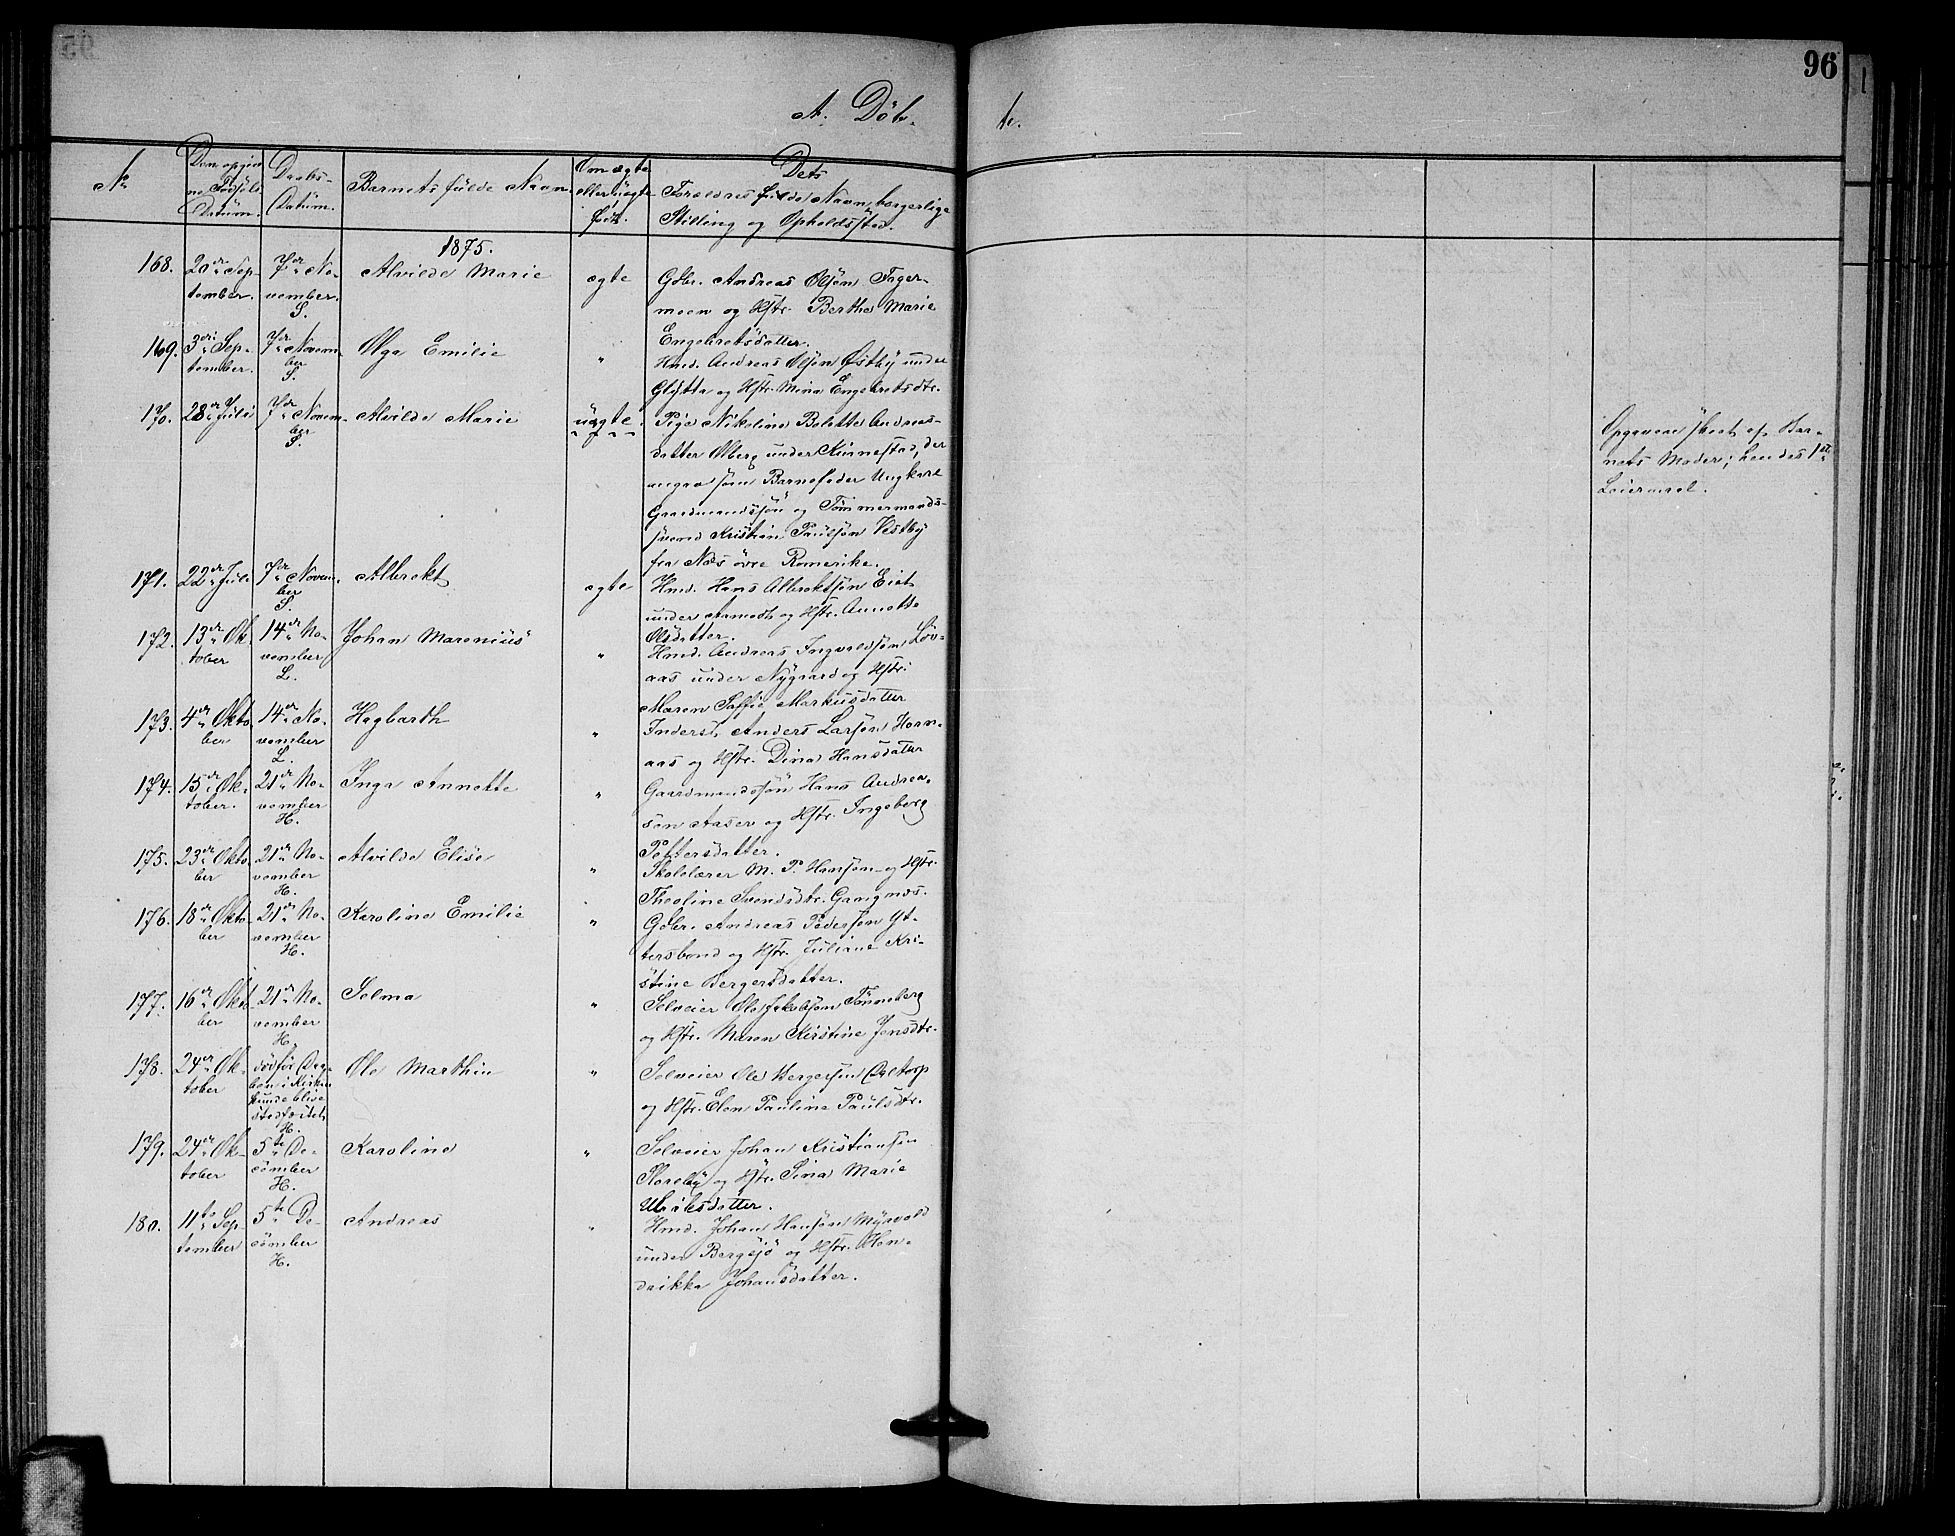 96
A. Döb- te.
No
Den opgivne Födsels Datum.
Daabs-Datum.
Barnets fulde Navn.
Om ægte eller uægte født.
Dets Forældres fulde Navn, borgerlige Stilling og Opholdssted.
1875.
168. 20de September. 7de November. S. Alvilde Marie ægte Gdbr. Andreas Olsen Fager-
moen og Hstr. Berthe Marie
Engebretsdatter.
169. 3die September. 7de November S. Olga Emilie " Hmd. Andreas Olsøn Østby under
Glötta og Hstr. Mina Engebretsdtr.
170. 28de Juli 7de November S. Alvilde Marie uægte. Pige Nikoline Bolette Andreas-
datter Olberg under Kinnestad, der
angav som Barnefader Ungkarl
Gaardmandssøn og Tømmermands-
svend Kristian Paulsøn Vestby
fra Næs övre Romerike.
Opgaven skeet af Bar-
nets Moder; hendes 1ste
Leiermaal.
171. 22de Juli 7de November S. Albrekt ægte Hmd. Hans Albrektsøn Eiet
under Aamodt og Hstr. Annette
Olsdatter.
172. 13de Oktober 14de November L. Johan Marenius " Hmd. Andreas Ingvaldsøn Löv-
aas under Nygaard og Hstr.
Maren Saffie Markusdatter
173. 4de Oktober 14de November L. Hagbarth " Inderst Anders Larsøn Horn-
aas og Hstr. Dina Hansdatter
174. 15de Oktober. 21de November H. Inga Annette " Gaardmandssøn Hans Andrea-
søn Aaser og Hstr. Ingeborg
Pettersdatter.
175. 23de Oktober 21de November H. Alvilde Elise " Skolelærer M. P. Hansøn og Hstr.
Theoline Svendsdtr. Gangnæs.
176. 18de Oktober 21de November H. Karoline Emilie " Gdbr. Andreas Pedersøn Yt-
tersbond og Hstr. Juliane Kri-
stine Bergersdatter.
177. 16de Oktober 21de November H. Selma " Selveier Ole Jakobsøn Tönneberg
og Hstr. Maren Kirstine Jensdtr.
178. 24de Oktober död før Daaben i Kirken kunde blive stadfæstet, H. Ole Marthin " Selveier Ole Bergersøn Daltorp
og Hstr. Elen Pauline Paulsdtr.
179. 24de Oktober 5te December H. Karoline " Selveier Johan Kristiansen
Storeby og Hstr. Sina Marie
Ulriksdatter.
180. 11te September 5te December H. Andreas " Hmd. Johan Hansøn Myrvold
under Bergsjö og Hstr. Hen-
drikka Johansdatter.